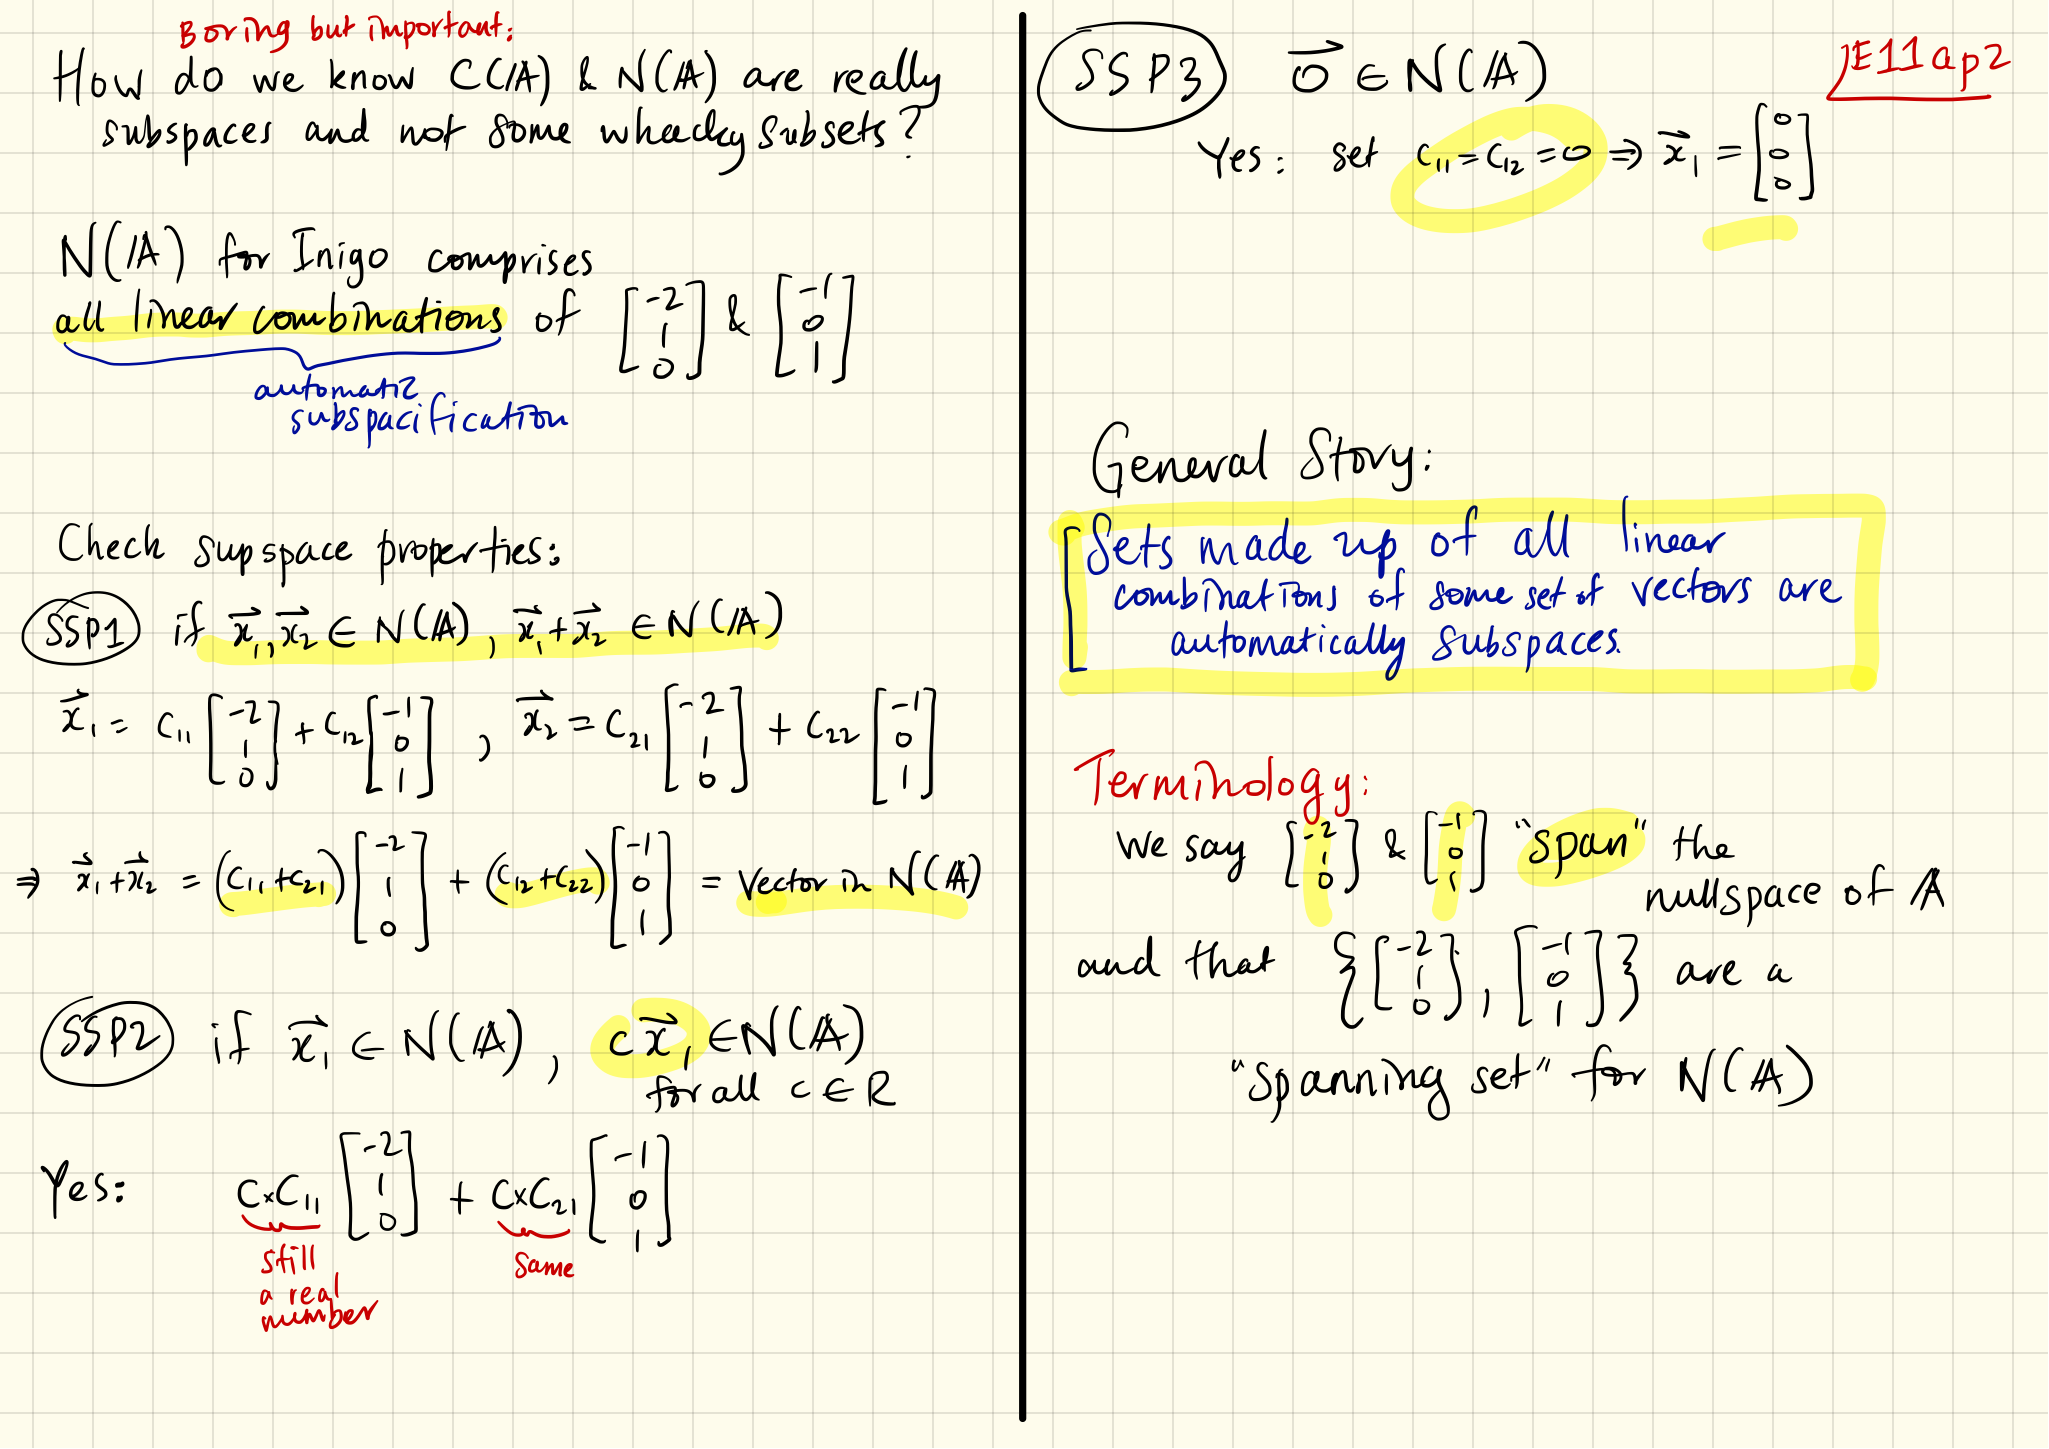 Boring but important:
How do we know C(A) & N(A) are really
subspaces and not some whacky subsets?
N(A) for Inigo comprises
all linear combinations of [-2 1 0] & [-1 0 1]
automatic
subspacification
Check supspace properties:
SSP1 if x⃗₁, x⃗₂ ∈ N(A), x⃗₁+x⃗₂ ∈ N(A)
x⃗₁ = c₁₁ [-2 1 0] + c₁₂ [-1 0 1], x⃗₂ = c₂₁ [-2 1 0] + c₂₂ [-1 0 1]
⇒ x⃗₁+x⃗₂ = (c₁₁+c₂₁) [-2 1 0] + (c₁₂+c₂₂) [-1 0 1] = vector in N(A)
SSP2 if x⃗₁ ∈ N(A), c x⃗₁ ∈ N(A)
for all c ∈ R
Yes: c×c₁₁ [-2 1 0] + c×c₂₁ [-1 0 1]
still
a real
number
same
E11ap2
SSP3 0⃗ ∈ N(A)
Yes: set c₁₁=c₁₂=0 ⇒ x⃗₁ = [0 0 0]
General Story:
Sets made up of all linear
combinations of some set of vectors are
automatically subspaces.
Terminology:
We say [-2 1 0] & [-1 0 1] "span" the
nullspace of A
and that {[-2 1 0], [-1 0 1]} are a
"spanning set" for N(A)